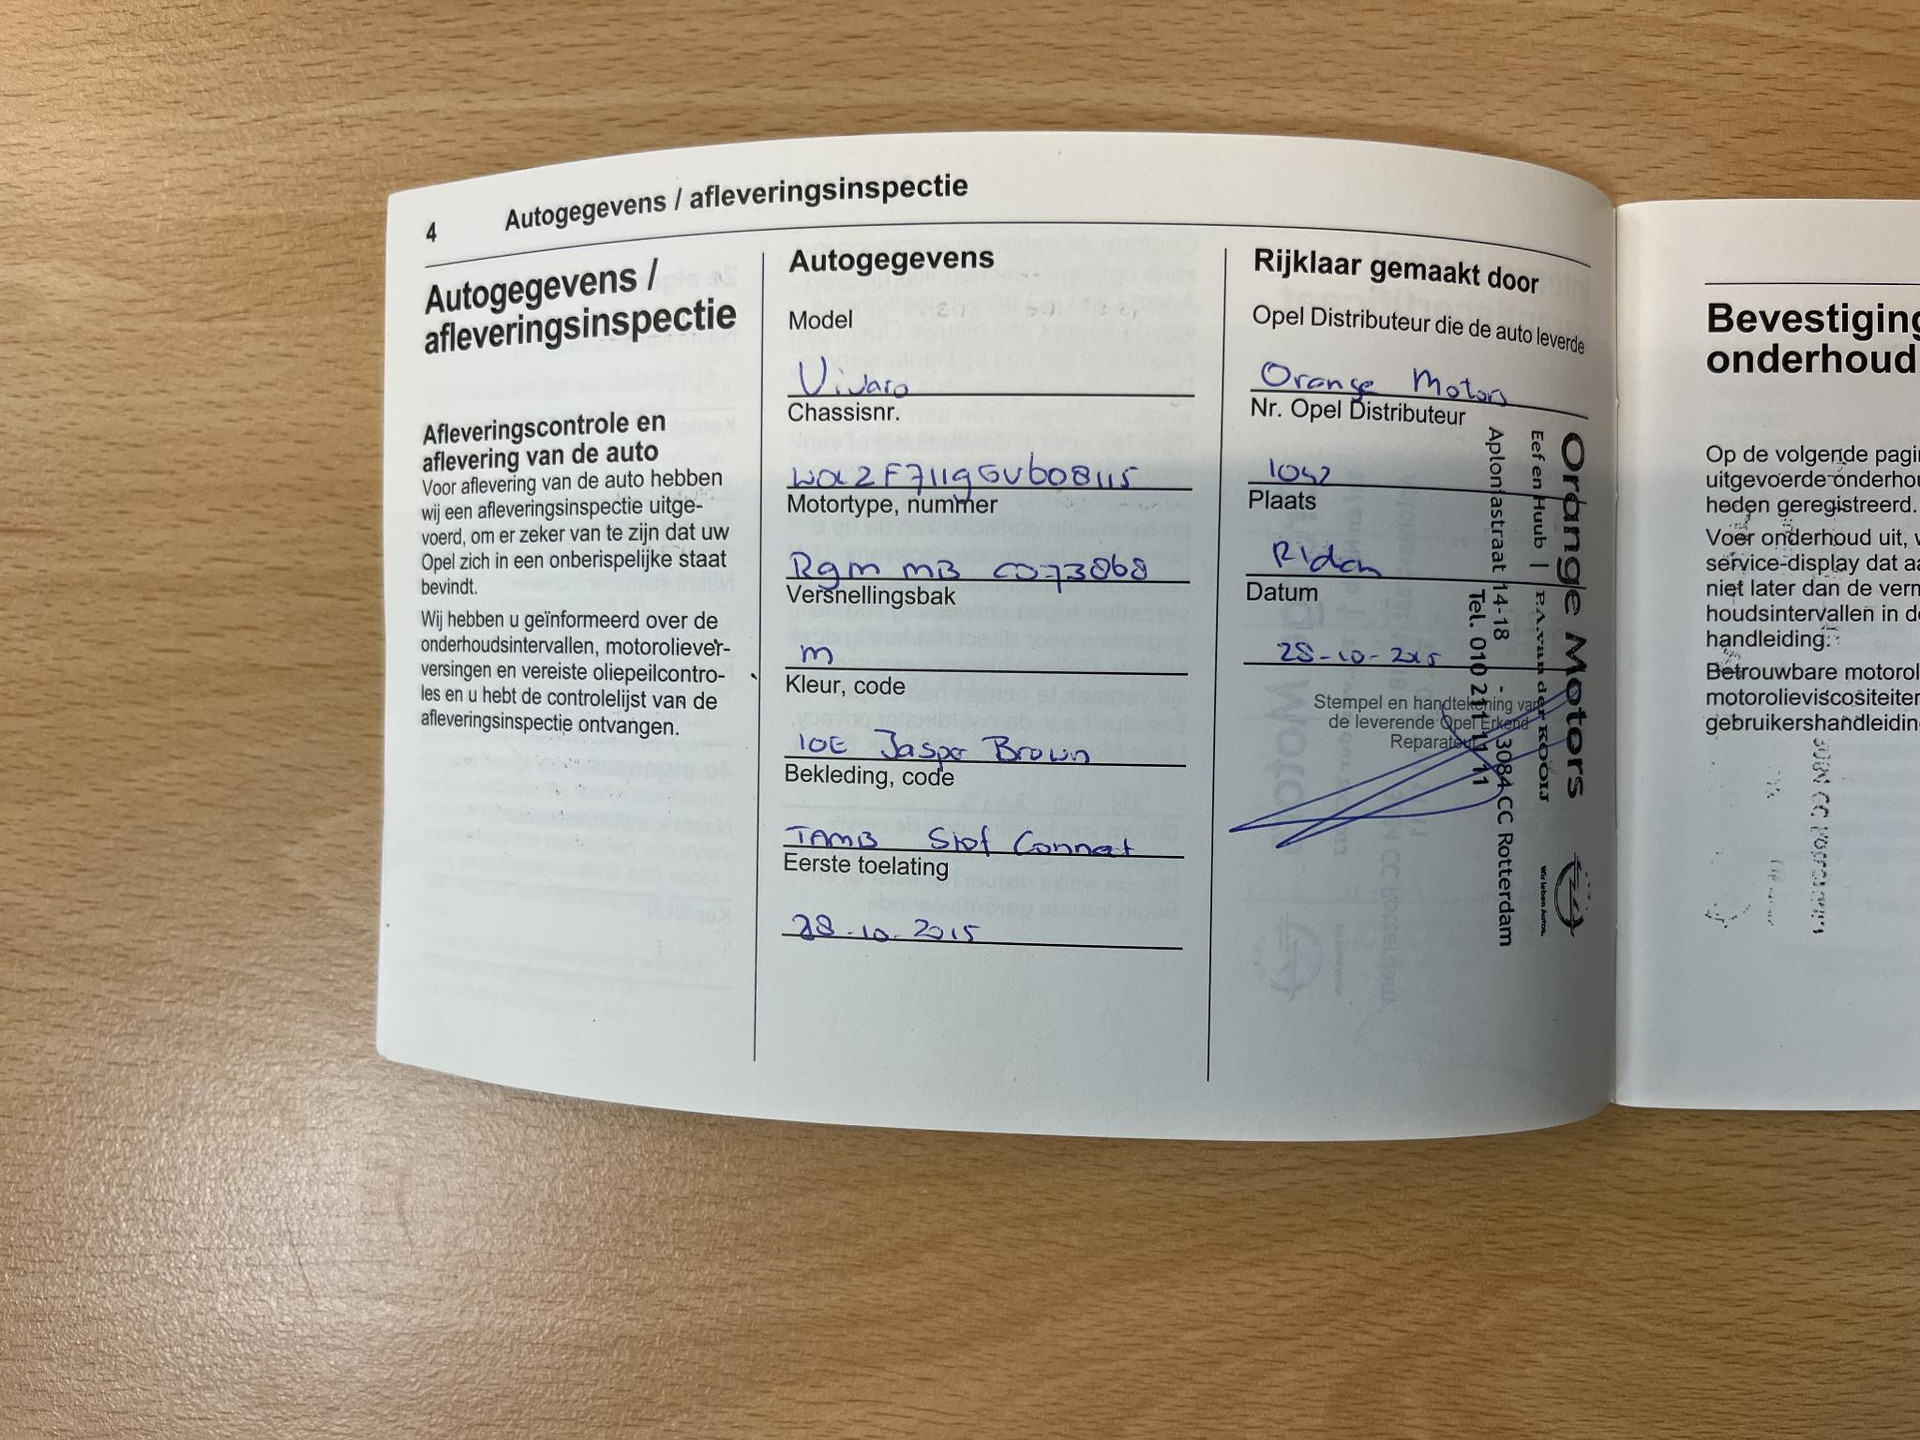 4 Autogegevens / afleveringsinspectie
Autogegevens /
afleveringsinspectie
Afleveringscontrole en
aflevering van de auto
Voor aflevering van de auto hebben
wij een afleveringsinspectie uitge-
voerd, om er zeker van te zijn dat uw
Opel zich in een onberispelijke staat
bevindt.
Wij hebben u geïnformeerd over de
onderhoudsintervallen, motoroliever-
versingen en vereiste oliepeilcontro-
les en u hebt de controlelijst van de
afleveringsinspectie ontvangen.
Autogegevens
Model
Vivaro
Chassisnr.
W0L2F7119GVb08115
Motortype, nummer
R9m mB C073868
Versnellingsbak
m
Kleur, code
10E Jasper Brown
Bekleding, code
TAMB Stof Connect
Eerste toelating
28-10-2015
Rijklaar gemaakt door
Opel Distributeur die de auto leverde
Orange Motors
Nr. Opel Distributeur
1042
Plaats
R'dam
Datum
28-10-2015
Stempel en handtekening van
de leverende Opel Erkend
Reparateur
Orange Motors
Eef en Huub | P.A. van der KOOIJ
Aploniastraat 14-18 - 3084 CC Rotterdam
Tel. 010 211 11 11
Wir leben Autos.
Bevestiging
onderhoud
Op de volgende pagi
uitgevoerde onderhou
heden geregistreerd.
Voer onderhoud uit, v
service-display dat aa
niet later dan de verm
houdsintervallen in de
handleiding.
Betrouwbare motorol
motorolieviscositeiten
gebruikershandleiding